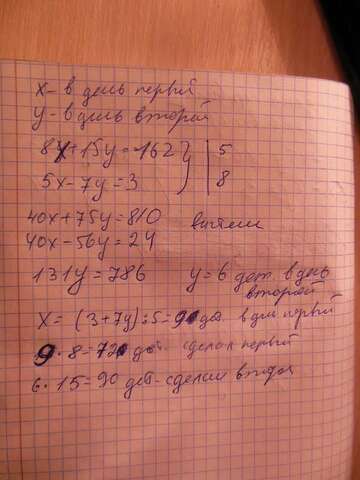 х - в день первый
у - в день второй
8х+15у=162 | 5
5х-7у=3 | 8
40х+75у=810 вычтем
40х-56у=24
131у=786 у=6 дет. в день
второй
х= (3+7у):5=9 дет. в дн первый
9·8=72 дет сделал первый
6·15=90 дет-сделал второй